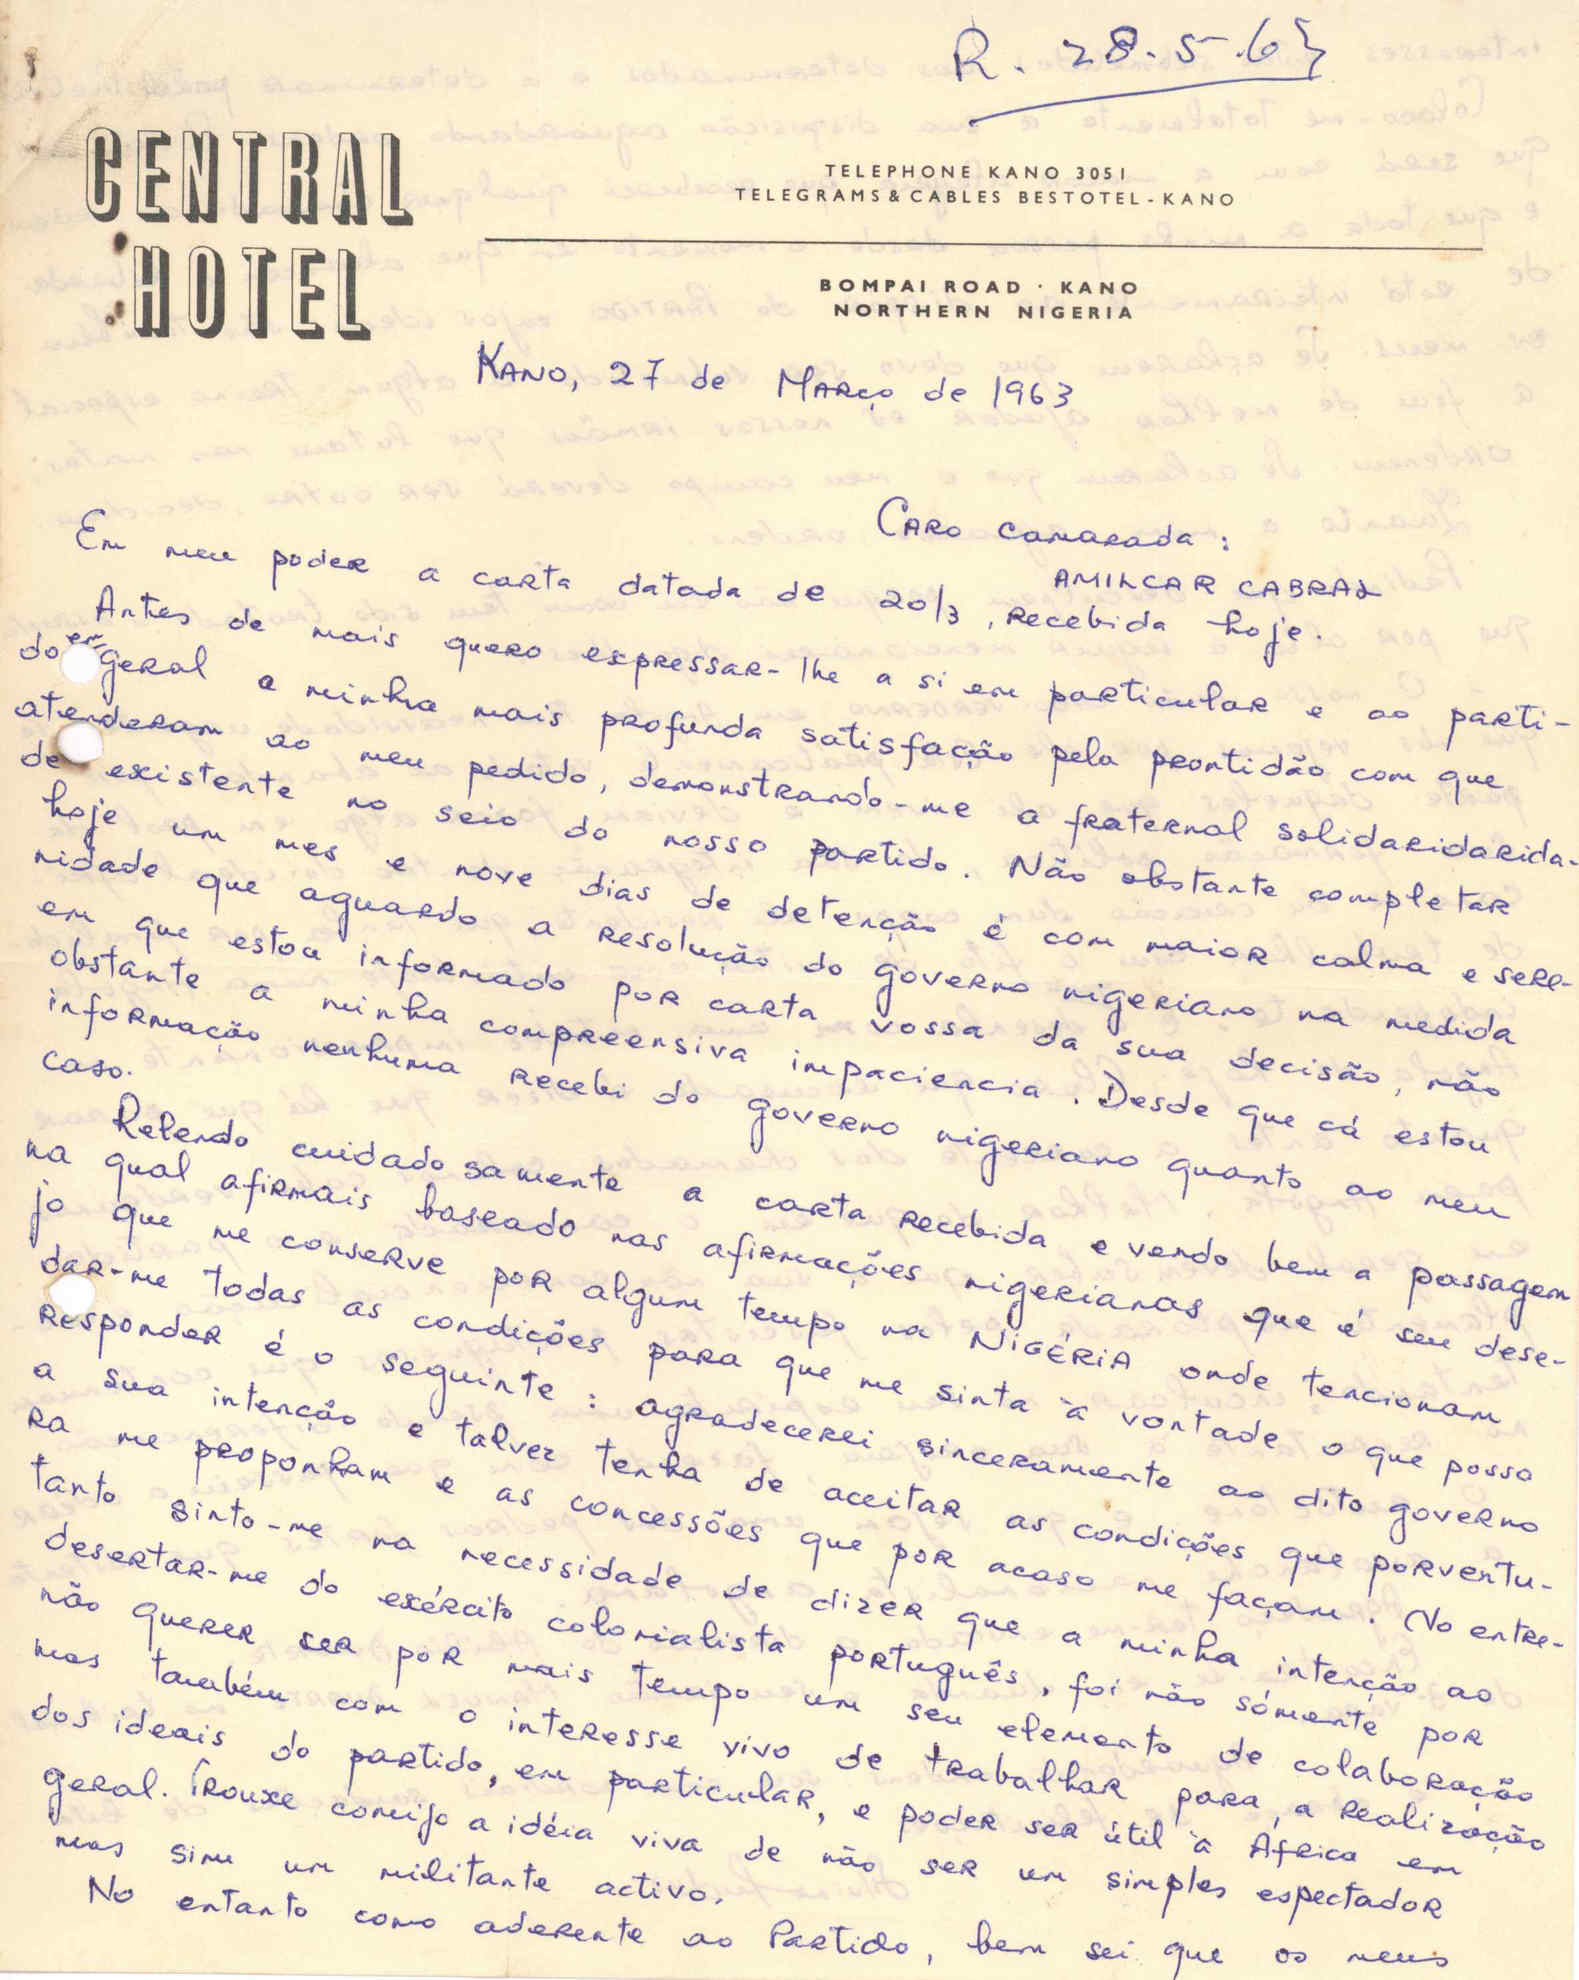 R. 28.5.63
CENTRAL
HOTEL
TELEPHONE KANO 3051
TELEGRAMS & CABLES BESTOTEL - KANO
BOMPAI ROAD · KANO
NORTHERN NIGERIA
KANO, 27 de MARÇO de 1963
CARO camarada:
AMILCAR CABRAL
Em meu poder a carta datada de 20/3, recebida hoje.
Antes de mais quero expressar-lhe a si em particular e ao parti-
do em geral a minha mais profunda satisfação pela prontidão com que
atenderam ao meu pedido, demonstrando-me a fraternal solidaridarida-
de existente no seio do nosso partido. Não obstante completar
hoje um mes e nove dias de detenção é com maior calma e sere-
nidade que aguardo a resolução do governo nigeriano na medida
em que estou informado por carta vossa da sua decisão, não
obstante a minha compreensiva impaciencia. Desde que cá estou
informação nenhuma recebi do governo nigeriano quanto ao meu
caso.
Relendo cuidadosamente a carta recebida e vendo bem a passagem
na qual afirmais baseado nas afirmações nigerianas que é seu dese-
jo que me conserve por algum tempo na NIGÉRIA onde tencionam
dar-me todas as condições para que me sinta à vontade o que posso
responder é o seguinte: agradecerei sinceramente ao dito governo
a sua intenção e talvez tenha de aceitar as condições que porventu-
ra me proponham e as concessões que por acaso me façam. No entre-
tanto sinto-me na necessidade de dizer que a minha intenção ao
desertar-me do exército colonialista português, foi não sómente por
não querer ser por mais tempo um seu elemento de colaboração
mas também com o interesse vivo de trabalhar para a realização
dos ideais do partido, em particular, e poder ser útil à África em
geral. Trouxe comigo a idéia viva de não ser um simples espectador
mas sim um militante activo.
No entanto como aderente ao Partido, bem sei que os meus